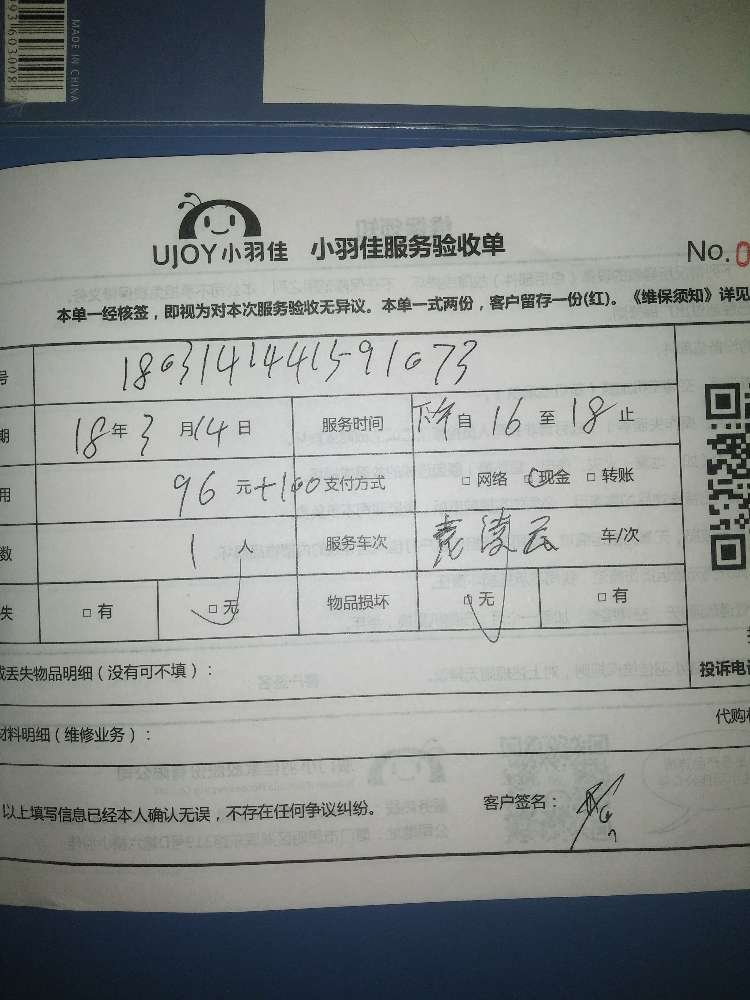 MADE IN CHINA
UJOY小羽佳 小羽佳服务验收单
No.0
本单一经核签，即视为对本次服务验收无异议。本单一式两份，客户留存一份(红)。《维保须知》详见
号 1803141441591073
期 18年3月14日 服务时间 下午自16至18止
用 96元+100 支付方式 □网络 □现金 □转账
数 1人 服务车次 袁凌云 车/次
失 □有 □无 物品损坏 □无 □有
或丢失物品明细（没有可不填）： 投诉电话
材料明细（维修业务）： 代购
以上填写信息已经本人确认无误，不存在任何争议纠纷。 客户签名：